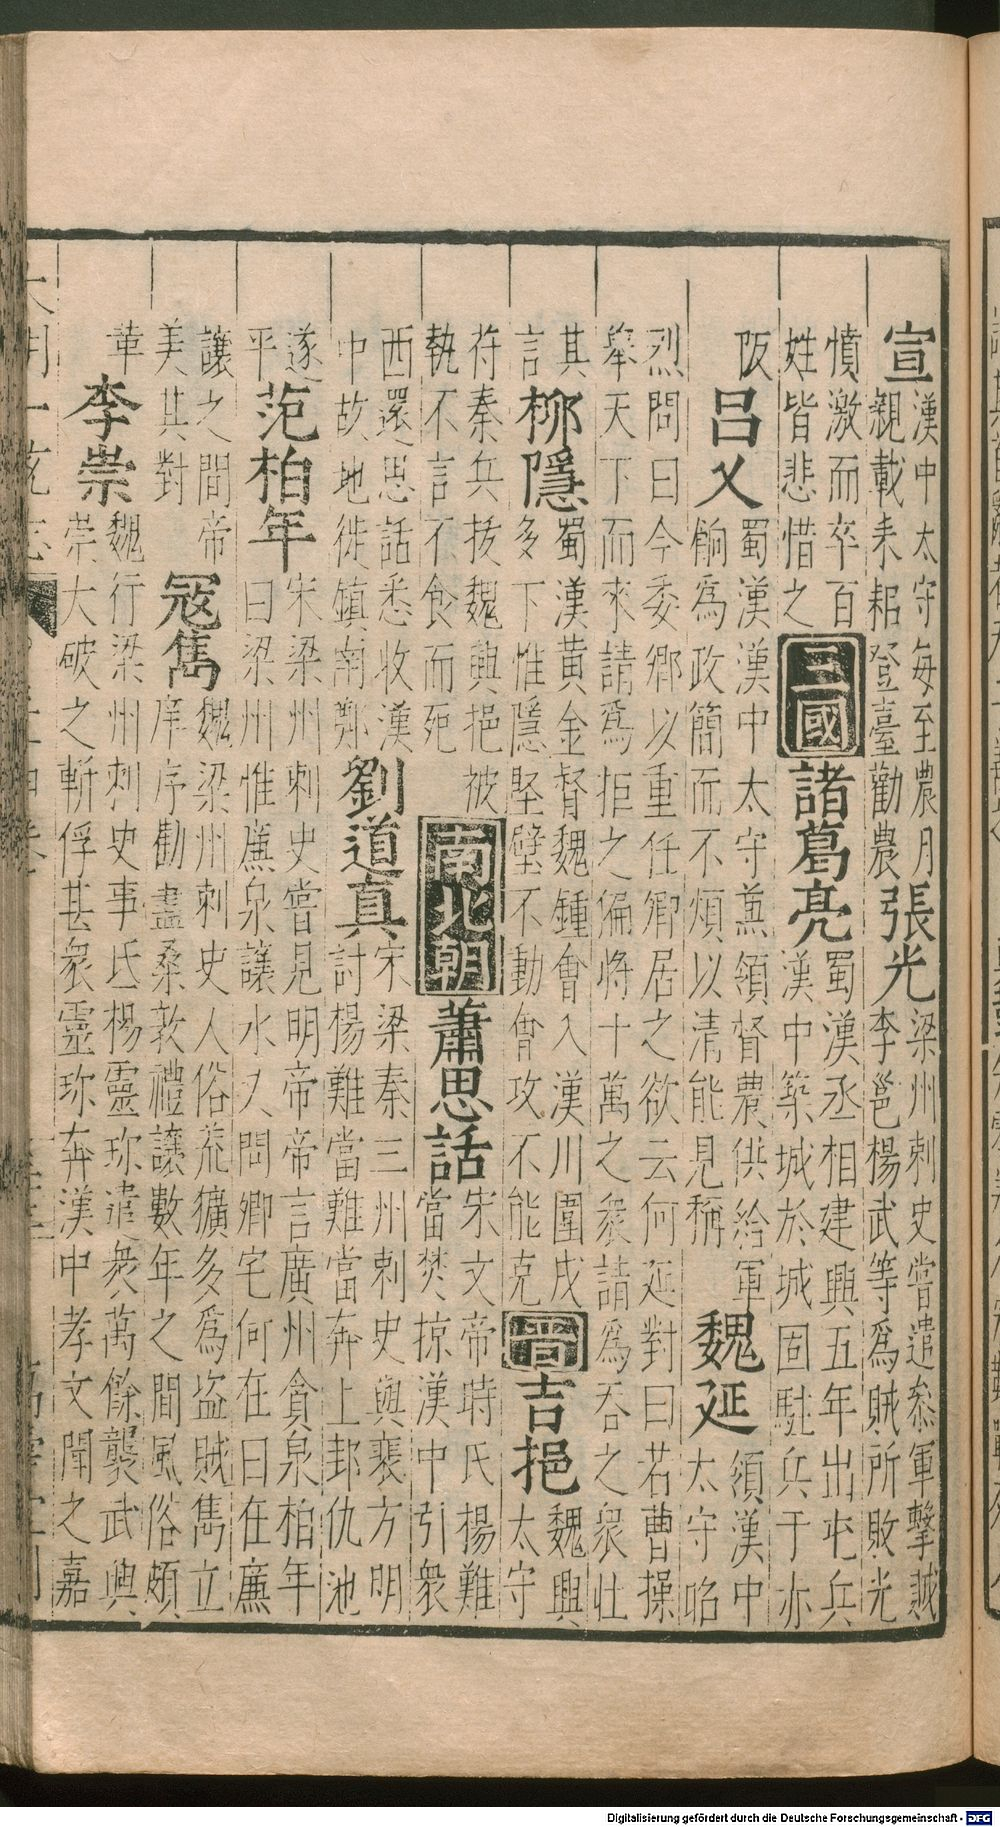 宣
漢中太守每至農月
親載耒耜登臺勸農
張光
梁州刺史嘗遣叅軍擊賊
李邕楊武等爲賊所敗光
憤激而卒百
姓皆悲惜之
三國
諸葛亮
蜀漢丞相建興五年出屯兵
漢中築城於城固駐兵于亦
阪
呂乂
蜀漢漢中太守兼領督農供給軍
餉爲政簡而不煩以清能見稱
魏延
須漢中
太守昭
烈問曰今委卿以重任卿居之欲云何延對曰若曹操
舉天下而來請爲拒之偏將十萬之衆請爲吞之衆壯
其
言
柳隱
蜀漢黃金督魏鍾會入漢川圍戍
多下惟隱堅壁不動會攻不能克
晉
吉挹
魏興
太守
苻秦兵拔魏興挹被
執不言不食而死
南北朝
蕭思話
宋文帝時氐楊難
當焚掠漢中引衆
西還思話悉收漢
中故地徙鎮南鄭
劉道真
宋梁秦三州刺史與裴方明
討楊難當難當奔上邽仇池
遂
平
范柏年
宋梁州刺史嘗見明帝帝言廣州貪泉柏年
曰梁州惟廉泉讓水又問卿宅何在曰在廉
讓之間帝
美其對
冦雋
魏梁州刺史人俗荒獷多爲盜賊雋立
庠序勸盡桑敦禮讓數年之間風俗頗
革
李崇
魏行梁州刺史事氐楊靈珎遣衆萬餘襲武興
崇大破之斬俘甚衆靈珎奔漢中孝文聞之嘉
Digitalisierung gefördert durch die Deutsche Forschungsgemeinschaft - DFG